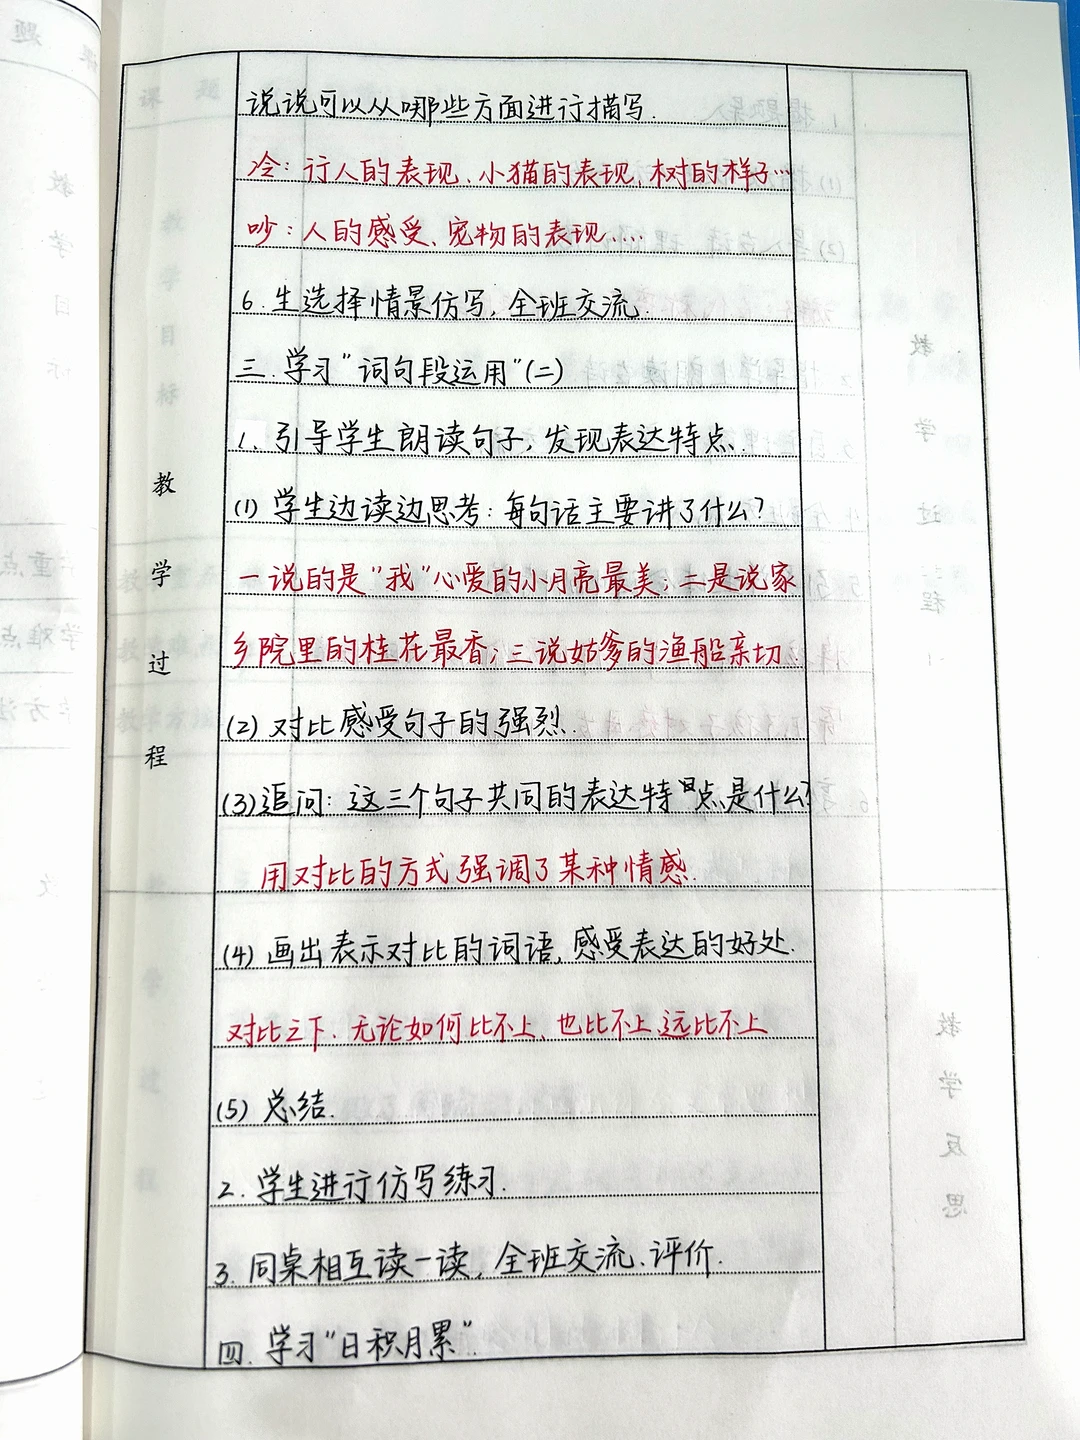 说说可以从哪些方面进行描写.
冷：行人的表现、小猫的表现、树的样子…
吵：人的感受、宠物的表现……
6.生选择情景仿写,全班交流.
三.学习"词句段运用"(二)
1、引导学生朗读句子,发现表达特点.
(1) 学生边读边思考：每句话主要讲了什么?
一说的是"我"心爱的小月亮最美;二是说家
乡院里的桂花最香;三说姑爹的渔船亲切.
(2) 对比感受句子的强烈.
(3)追问：这三个句子共同的表达特点是什么?
用对比的方式强调了某种情感.
(4) 画出表示对比的词语,感受表达的好处.
对比之下、无论如何比不上、也比不上、远比不上
(5) 总结.
2.学生进行仿写练习.
3.同桌相互读一读,全班交流、评价.
四.学习"日积月累".
教
学
过
程